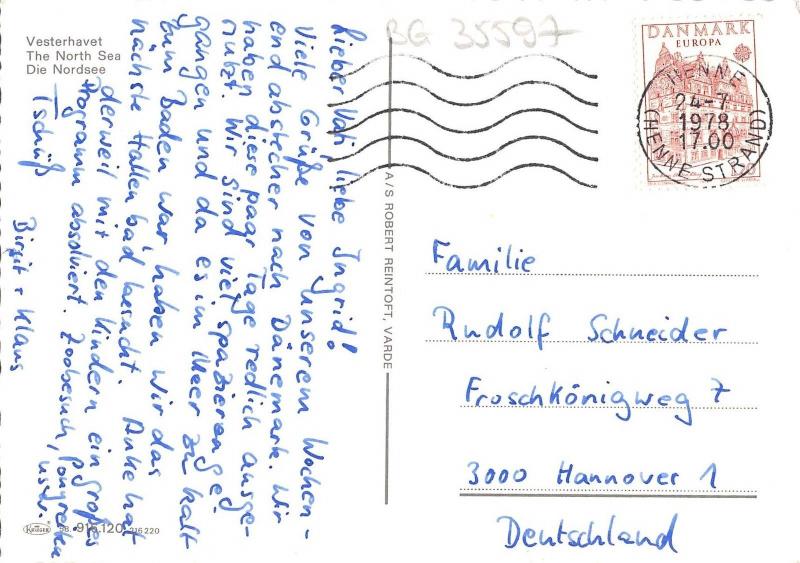 Vesterhavet
The North Sea
Die Nordsee
BG 35597
DANMARK
EUROPA
HENNE
24-7
1978
17.00
(HENNE STRAND)
Lieber Vati, liebe Ingrid!
Viele Grüße von unserem Wochen-
endabstecher nach Dänemark. Wir
haben diese paar Tage redlich ausge-
nutzt. Wir sind viel spazieren ge
gangen und da es im Meer zu kalt
zum Baden war haben wir das
nächste Hallenbad besucht. Anke hat
derweil mit den Kindern ein großes
Programm absolviert. Zoobesuch, Ponyreiten
usw.
Tschüß
Birgit + Klaus
A/S ROBERT REINTOFT, VARDE
Familie
Rudolf Schneider
Froschkönigweg 7
3000 Hannover 1
Deutschland
KRÜGER 58. 916.120 216220